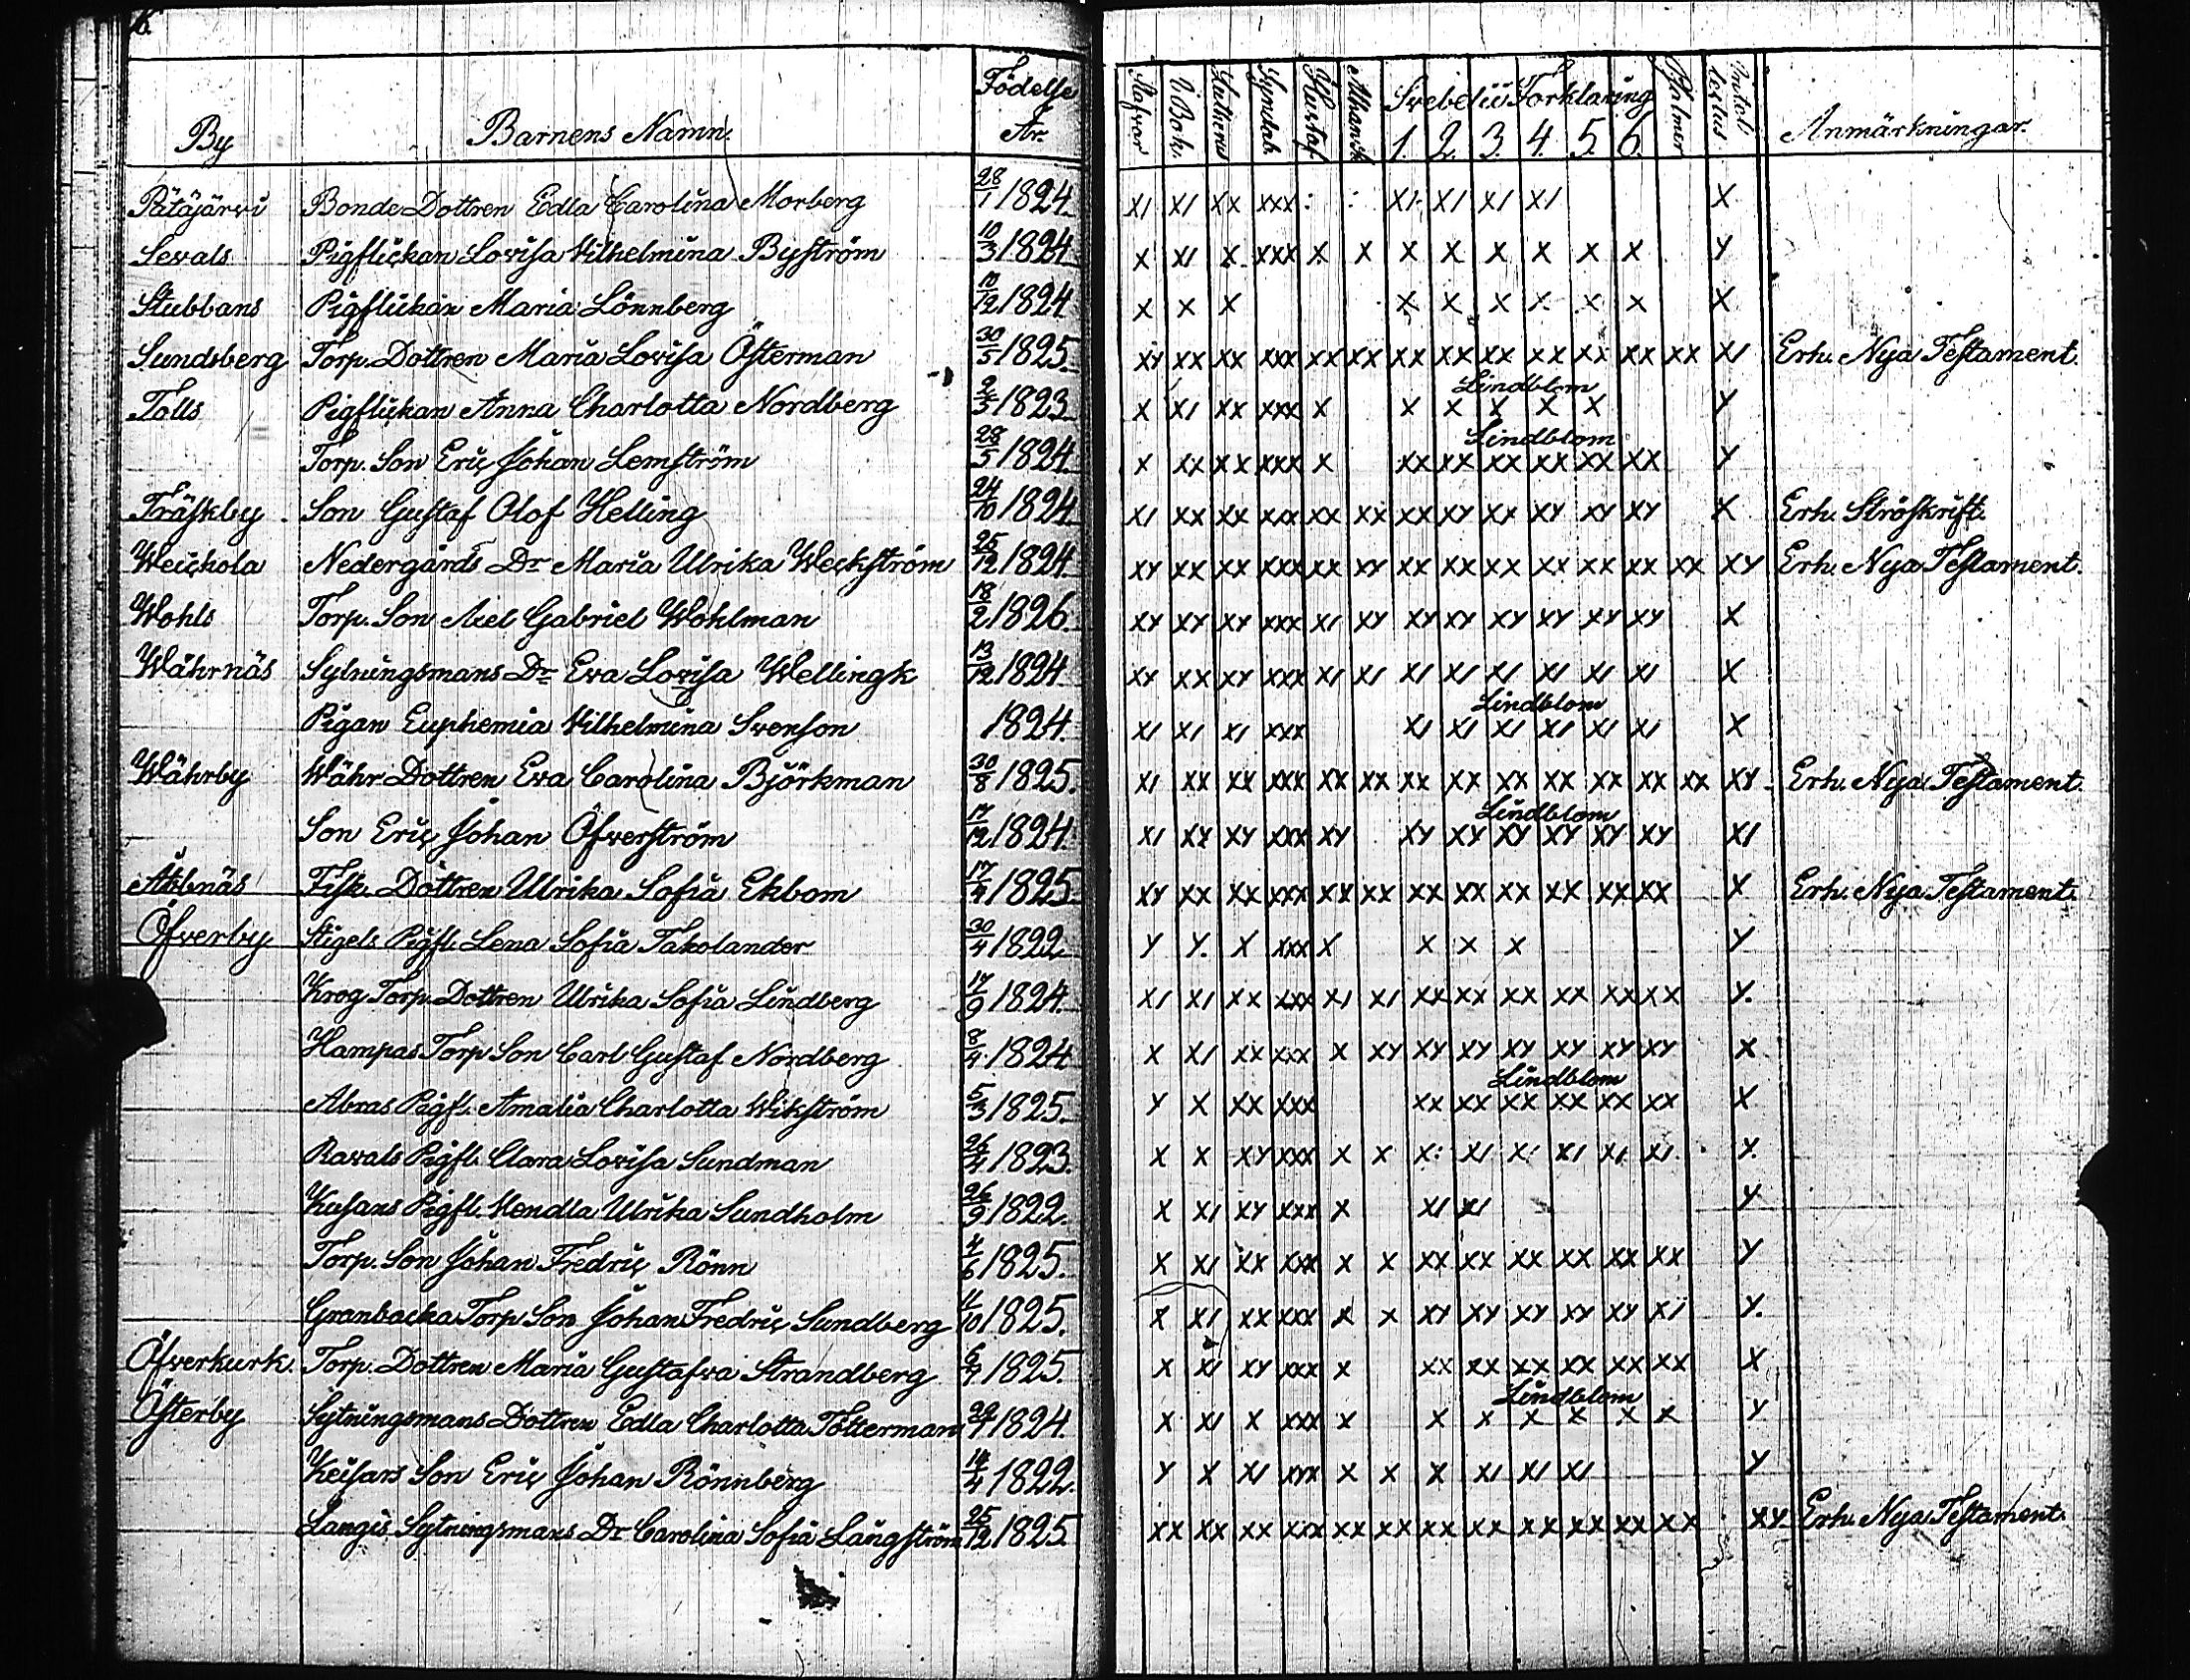 By Barnens Namn. Födelse År. Stafvar I Bok. Lutheri Symbol. Hustaf. Athanas. Svebelii Förklaring 1. 2. 3. 4. 5. 6. Psalmer Intellectus. Anmärkningar.
Pätäjärvi Bonde Dottren Edla Carolina Morberg 28/1 1824. XI XI XX XXX : : XI XI XI XI X
Sevals Pigflickan Lovisa Vilhelmina Byström 10/3 1824 X XI X XXX X X X X X X X X Y
Stubbans Pigflickan Maria Lönnberg 11/12 1824 X X X X X X X X X X
Sundsberg Torp. Dottren Maria Lovisa Österman 30/5 1825. XY XX XX XXX XX XX XX XX XX XX XX XX XX XI Erh. Nya Testament.
Lindblom
Tolls Pigflickan Anna Charlotta Nordberg 2/3 1823 X XI XX XXX X X X X X X Y
Lindblom
Torp. Son Eric Johan Lemström 28/5 1824 X XX XX XXX X XX XX XX XX XX XX Y
Träskby Son Gustaf Olof Helling 24/10 1824 XI XX XX XXX XX XX XX XY XX XY XY XY X Erh. Ströskrift.
Weickola Nedergårds Dr Maria Ulrika Weckström 25/12 1824 XY XX XX XXX XX XY XX XX XX XX XX XX XX XY Erh. Nya Testament.
Wohls Torp. Son Axel Gabriel Wohlman 18/2 1826 XY XY XY XXX XI XY XY XY XY XY XY XY X
Wåhrnäs Sytningsmans Dr Eva Lovisa Wellingk 13/12 1824 XY XX XY XXX XI XI XI XI XI XI XI XI X
Lindblom
Pigan Euphemia Vilhelmina Svenson 1824. XI XI XI XXX XI XI XI XI XI XI X
Wåhrby Wåhr Dottren Eva Carolina Björkman 30/8 1825. XI XX XX XXX XX XX XX XX XX XX XX XX XX XY. Erh. Nya Testament
Lindblom
Son Eric Johan Öfverström 17/12 1824. XI XX XY XXX XY XY XY XY XY XY XY XI
Fisk. Dottren Ulrika Sofia Ekbom 17/9 1825 XY XX XX XXX XX XX XX XX XX XX XX XX X Erh. Nya Testament.
Öfverby Stigels Pigfl. Lena Sofia Takolander 30/4 1822 Y Y. X XXX X X X X Y
Krog Torp. Dottren Ulrika Sofia Lindberg 17/9 1824. XI XI XX XXX XI XI XX XX XX XX XX XX Y.
Hampas Torp Son Carl Gustaf Nordberg 8/4 1824 X XI XX XXX X XY XY XY XY XY XY XY X
Lindblom
Abras Pigfl. Amalia Charlotta Wikström 5/3 1825. Y X XX XXX XX XX XX XX XX XX X
Ravals Pigfl. Clara Lovisa Sundman 26/4 1823. X X XY XXX X X X: XI X: XI XI XI Y.
Kusans Pigfl. Hendla Ulrika Sundholm 26/9 1822. X XI XY XXX X XI XI Y
Torp. Son Johan Fredric Rönn 4/6 1825. X XI XX XXX X X XX XX XX XX XX XX Y
Granbacka Torp. Son Johan Fredric Sundberg 11/10 1825. X XI XX XXX X X XY XY XY XY XY XI Y.
Öfverkurk. Torp. Dottren Maria Gustafva Strandberg 6/7 1825. X XI XY XXX X XX XX XX XX XX XX X
Lindblom
Österby Sytningsmans Dottren Edla Charlotta Tötterman 29/7 1824. X XI X XXX X X X X X X X Y
Keisars Son Eric Johan Rönnberg 14/4 1822. Y X XI XXX X X X XI XI XI Y
Langis Sytningsmans Dr Carolina Sofia Långström 25/12 1825 XX XX XX XXX XX XX XX XX XX XX XX XX XY. Erh. Nya Testament.